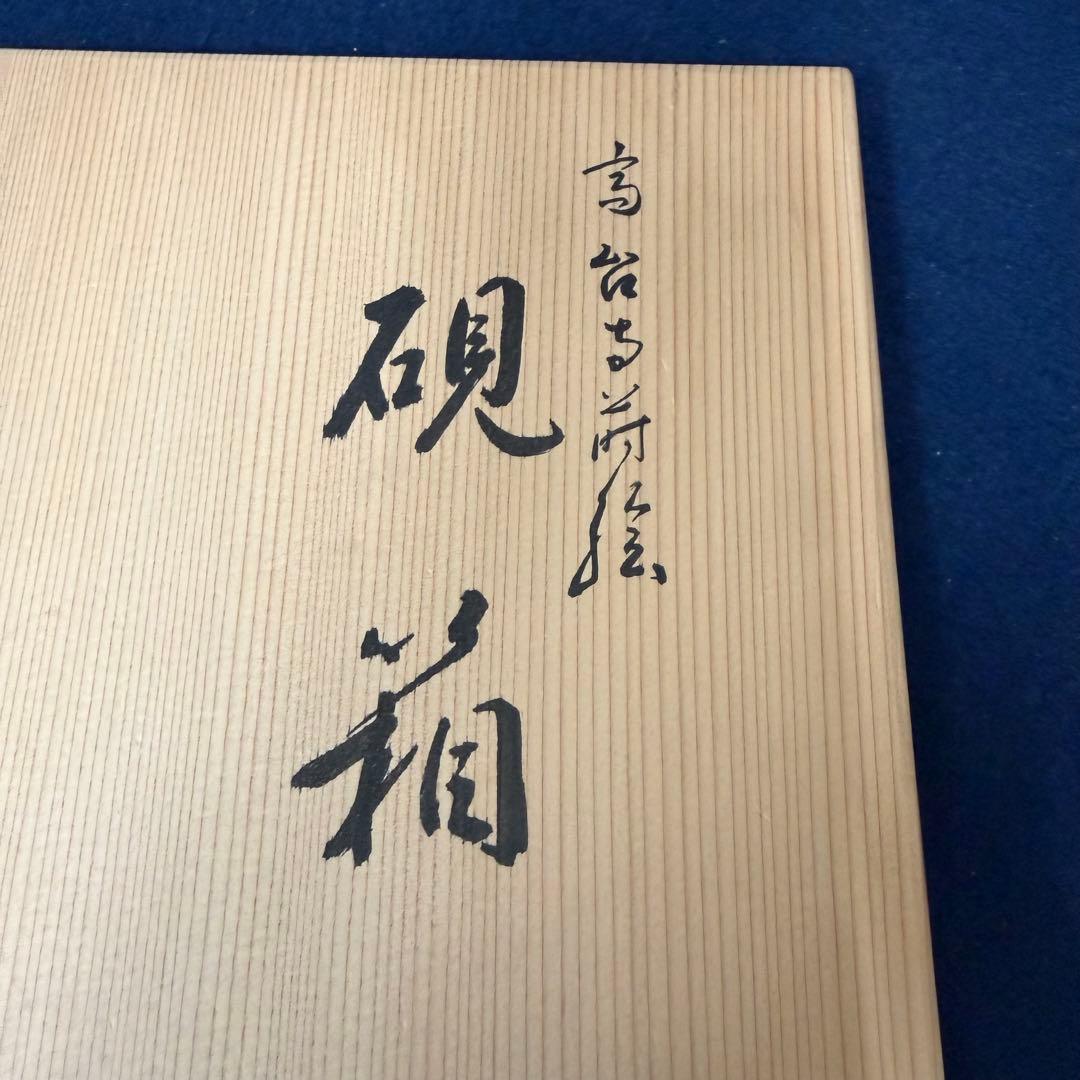 高台寺蒔絵
硯箱